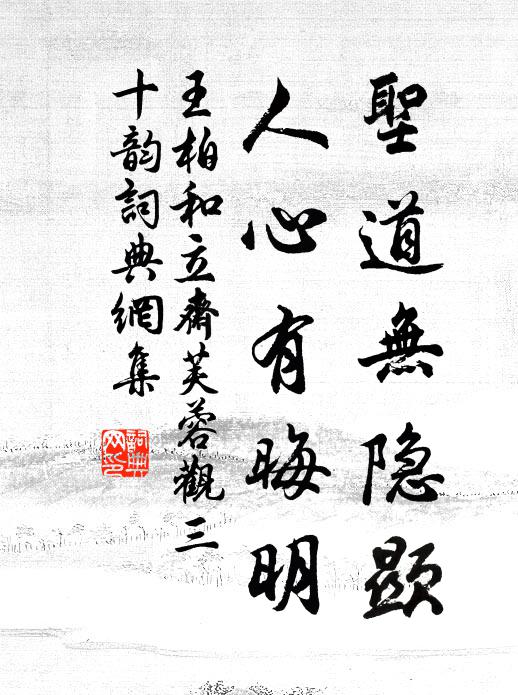 聖道無隐顯
人心有晦明
王柏和立齋芙蓉觀三
十韵詞典網集
詞典
网印